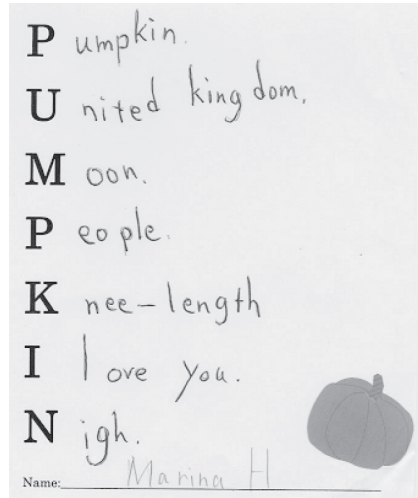 Pumpkin.
United kingdom.
Moon.
People.
Knee-length
I love you.
Nigh.
Name: Marina H